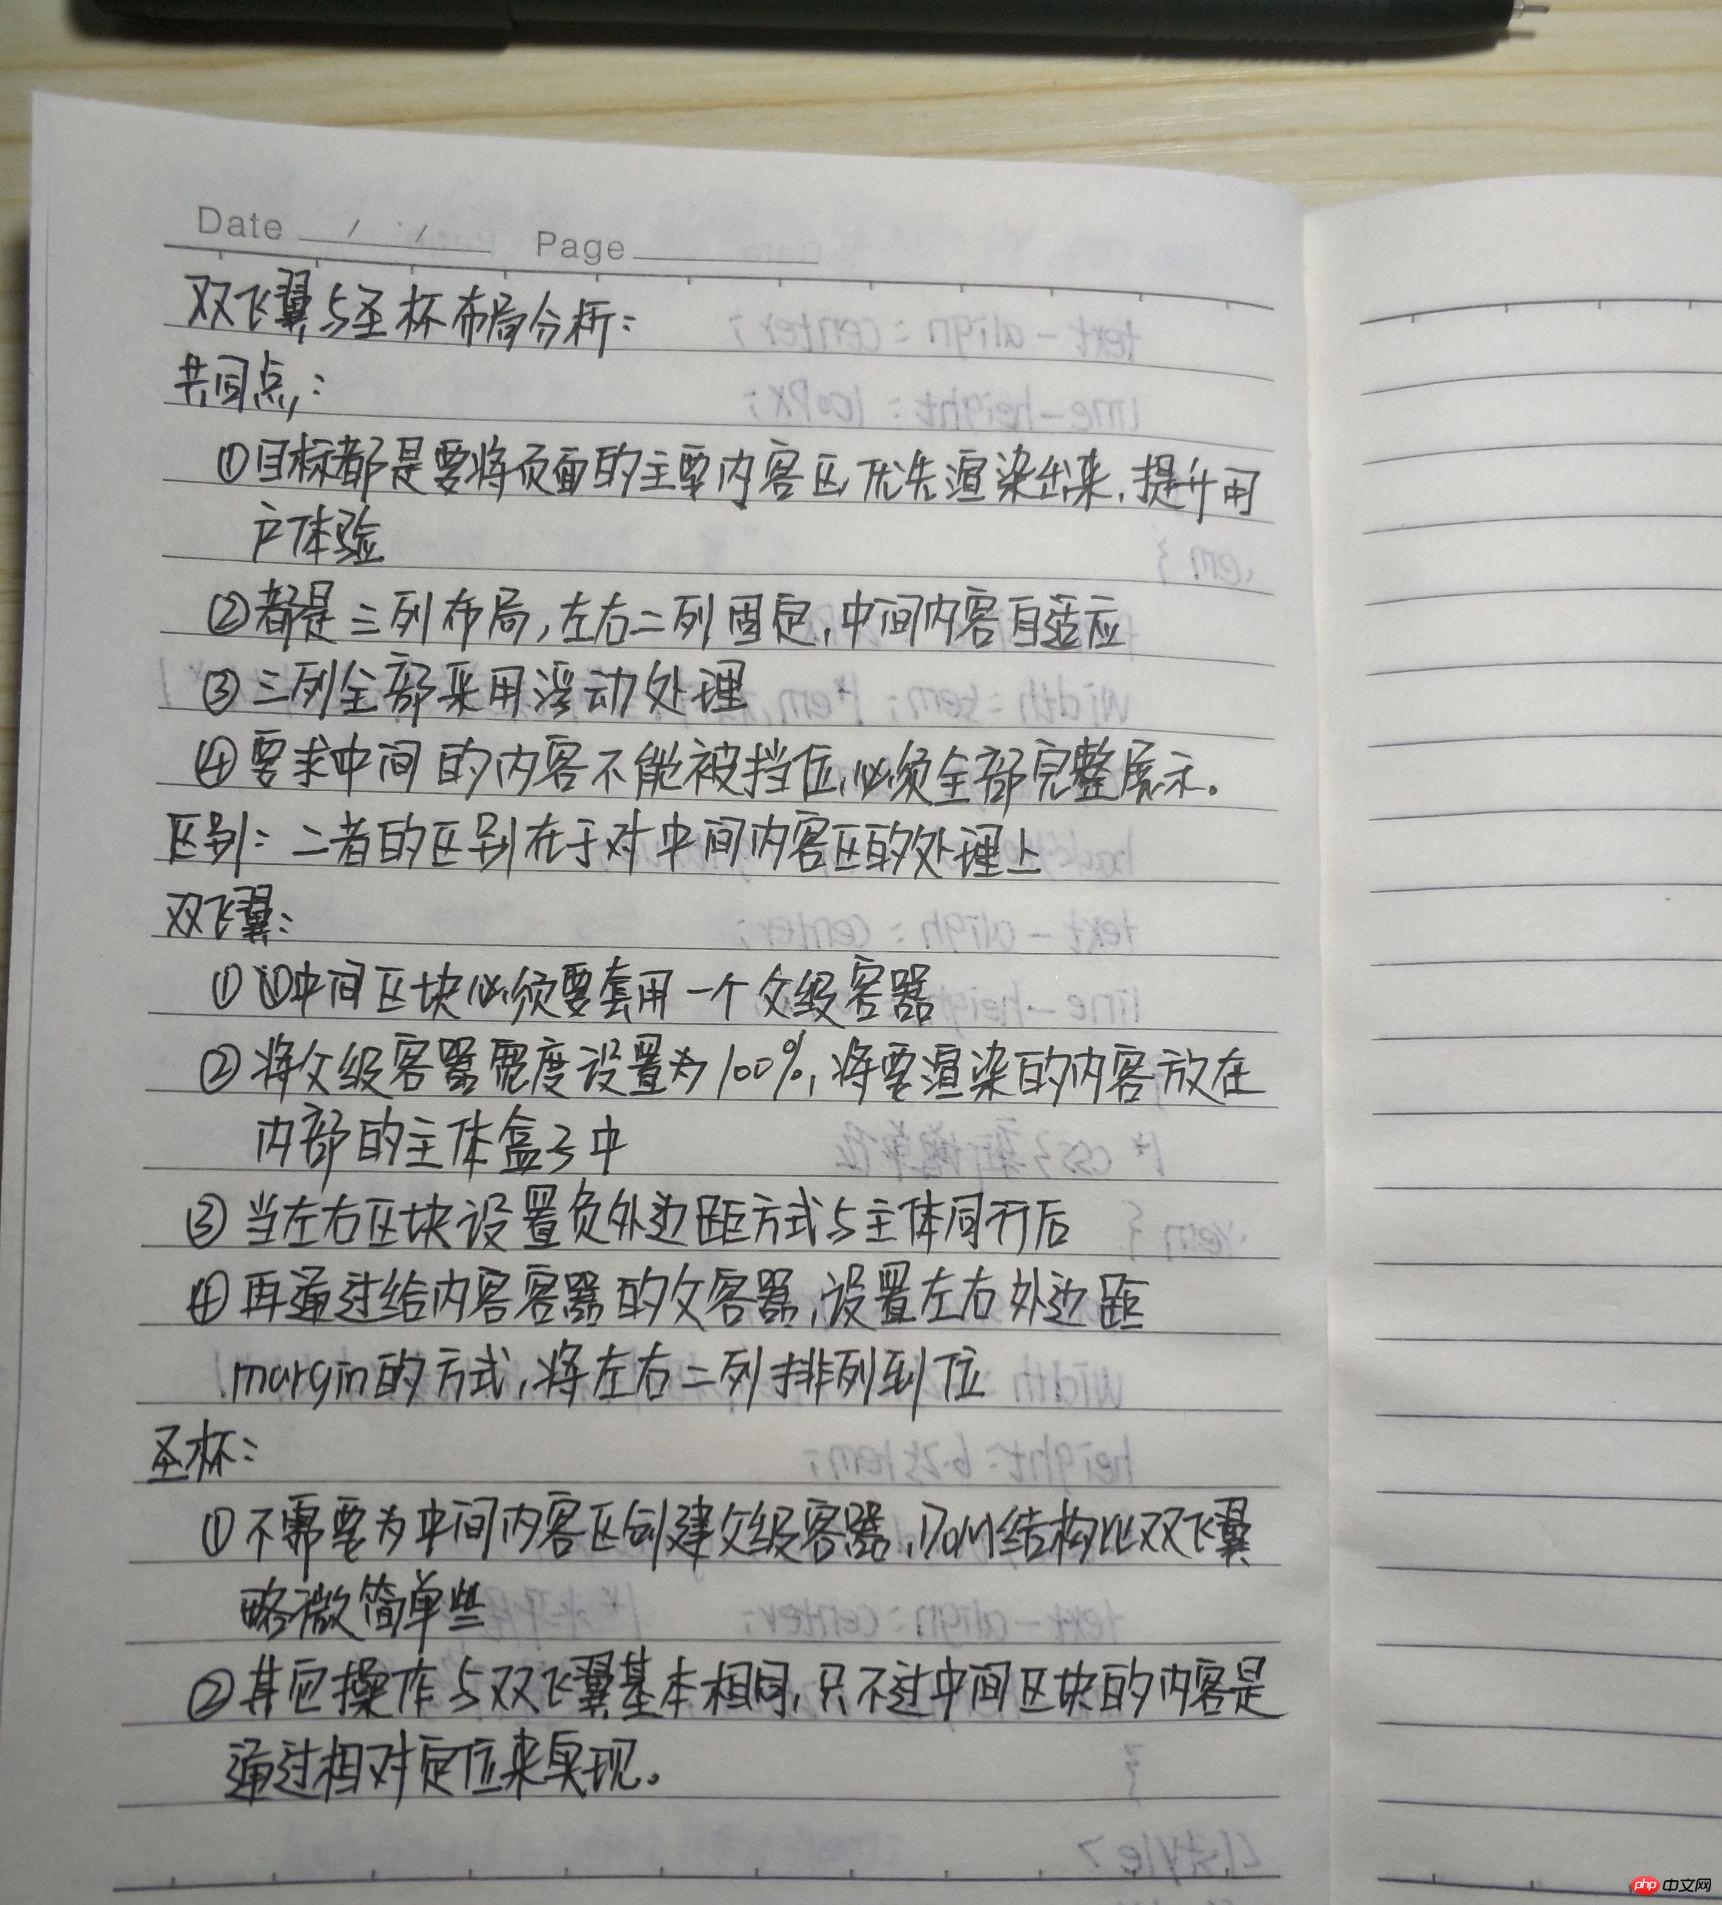 Date / / Page
双飞翼与圣杯布局分析:
共同点:
①目标都是要将页面的主要内容区优先渲染出来,提升用
户体验
②都是三列布局,左右二列固定,中间内容自适应
③三列全部采用浮动处理
④要求中间的内容不能被挡住,必须全部完整展示。
区别:二者的区别在于对中间内容区的处理上
双飞翼:
①①中间区块必须要套用一个父级容器
②将父级容器宽度设置为100%,将要渲染的内容放在
内部的主体盒子中
③当左右区块设置负外边距方式与主体同行后
④再通过给内容容器的父容器,设置左右外边距
margin的方式,将左右二列排列到位
圣杯:
①不需要为中间内容区创建父级容器,DOM结构比双飞翼
略微简单些
②其它操作与双飞翼基本相同,只不过中间区块的内容是
通过相对定位来实现。
php中文网